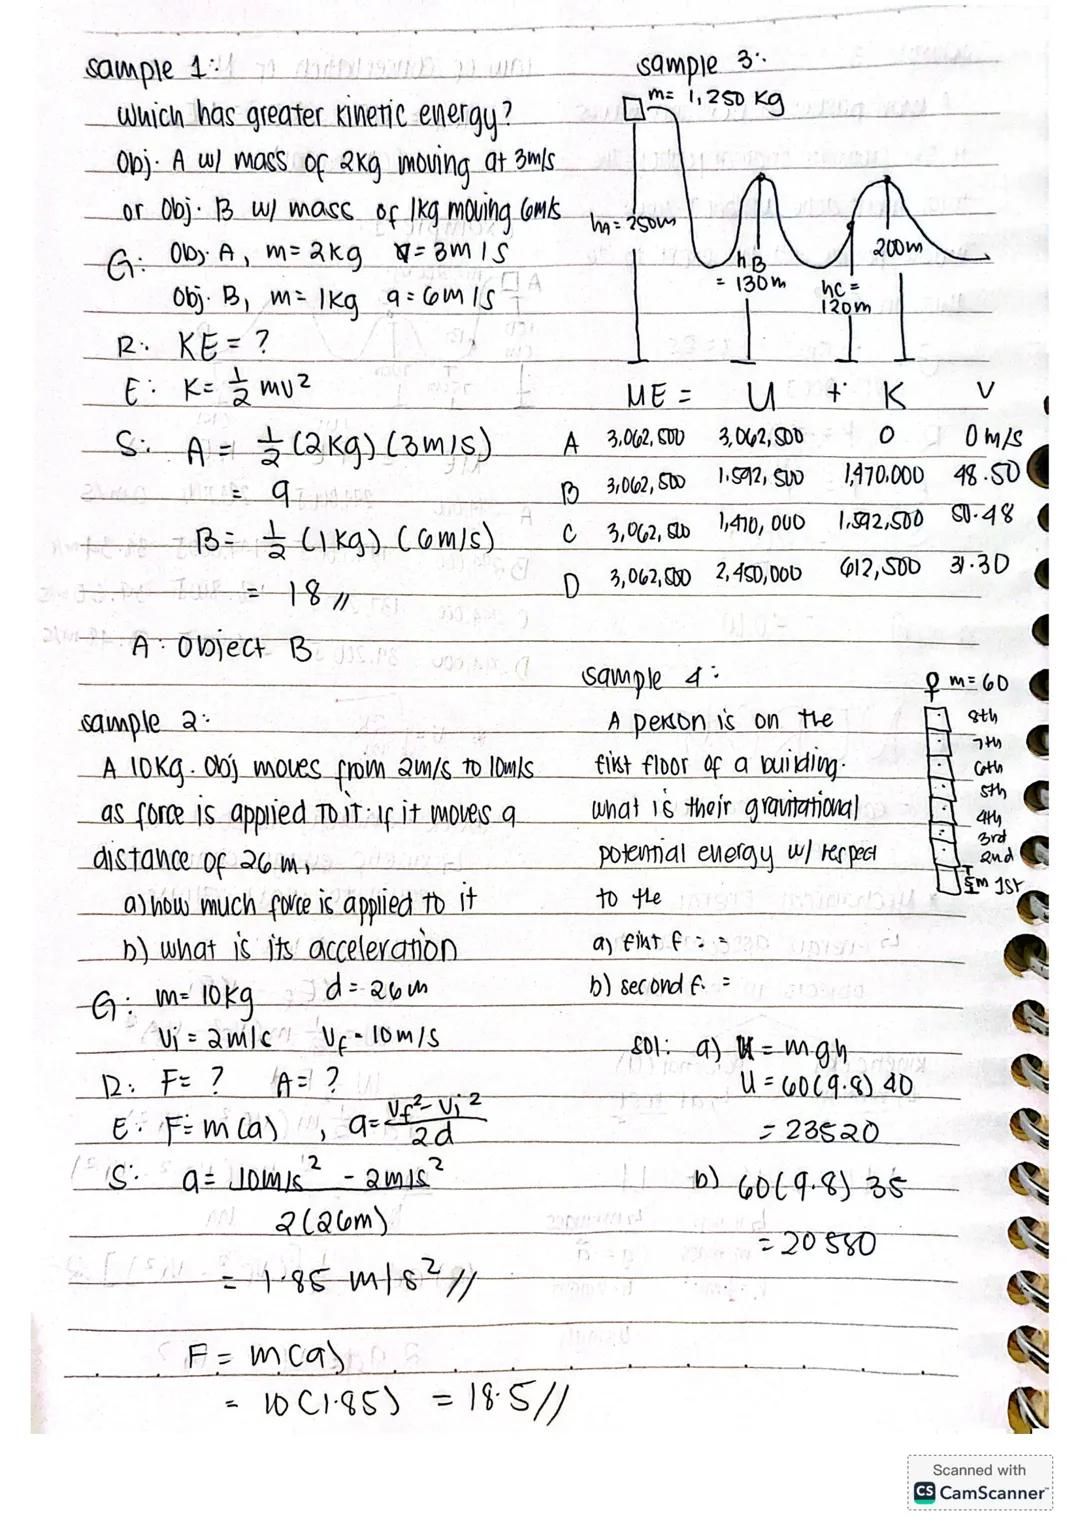 sample 1:
Which has greater kinetic energy?
Obj. A w/ mass of 2kg moving at 3m/s
or Obj. B w/ mass of 1kg moving 6m/s
G: Obj. A, m = 2kg v = 3m/s
Obj. B, m = 1kg a = 6m/s
R: KE = ?
E: K = 1/2 mv²
S: A = 1/2 (2kg) (3m/s)
= 9
B = 1/2 (1kg) (6m/s)
= 18 //
A: Object B
sample 2:
A 10kg. Obj moves from 2m/s to 10m/s
as force is applied to it. if it moves a
distance of 26m,
a) how much force is applied to it
b) what is its acceleration
G: m = 10kg d = 26m
Vi = 2m/s Vf = 10m/s
R: F = ? A = ?
E: F = m(a), a = Vf² - Vi² / 2d
S: a = 10m/s² - 2m/s²
2(26m)
= 1.85 m/s² //
F = m(a)
= 10(1.85) = 18.5 //
sample 3:
m = 1,250 kg
hA = 250m
hB
= 130m
hc =
120m
200m
ME = U + K V
A 3,062,500 3,062,500 0 0 m/s
B 3,062,500 1,592,500 1,470,000 48.50
C 3,062,500 1,470,000 1,592,500 50.48
D 3,062,500 2,450,000 612,500 31.30
sample 4:
A person is on the
first floor of a building.
what is their gravitational
potential energy w/ respect
to the
a) first f =
b) second f. =
m = 60
8th
7th
6th
5th
4th
3rd
2nd
5m 1st
sol: a) U = mgh
U = 60(9.8) 40
= 23520
b) 60(9.8) 35
= 20580
Scanned with
CS CamScanner